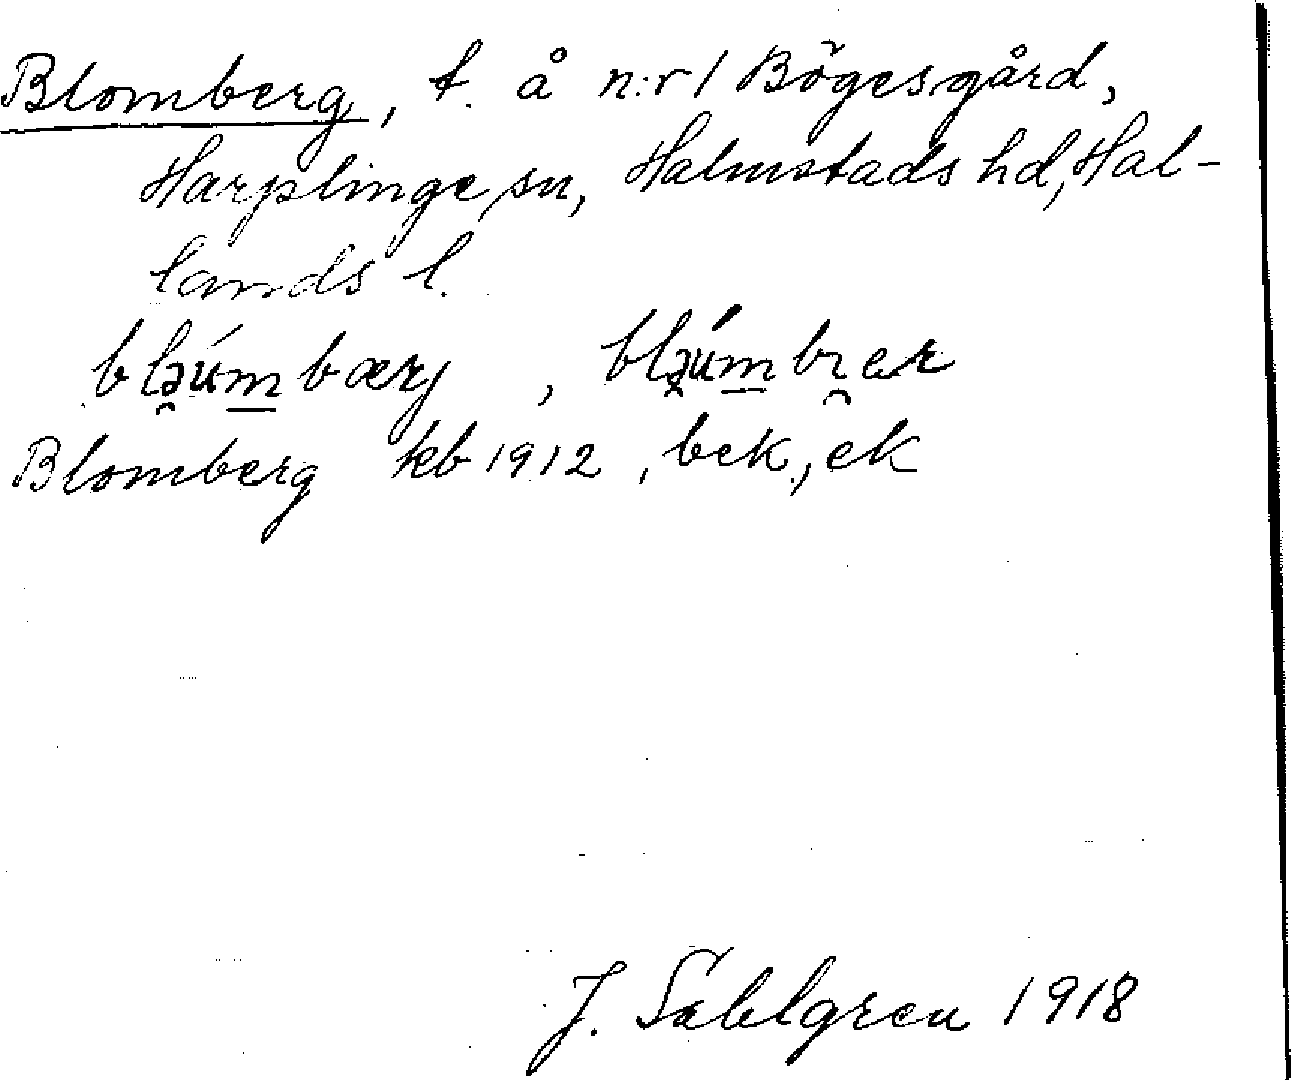 Blomberg, t. å n:r 1 Bögesgård,
Harplinge sn, Halmstads hd, Hal-
lands l.
blə̯úm̲bærj, blə̯úm̲br̯ər
Blomberg kb 1912, bek., ek
J. Sahlgren 1918